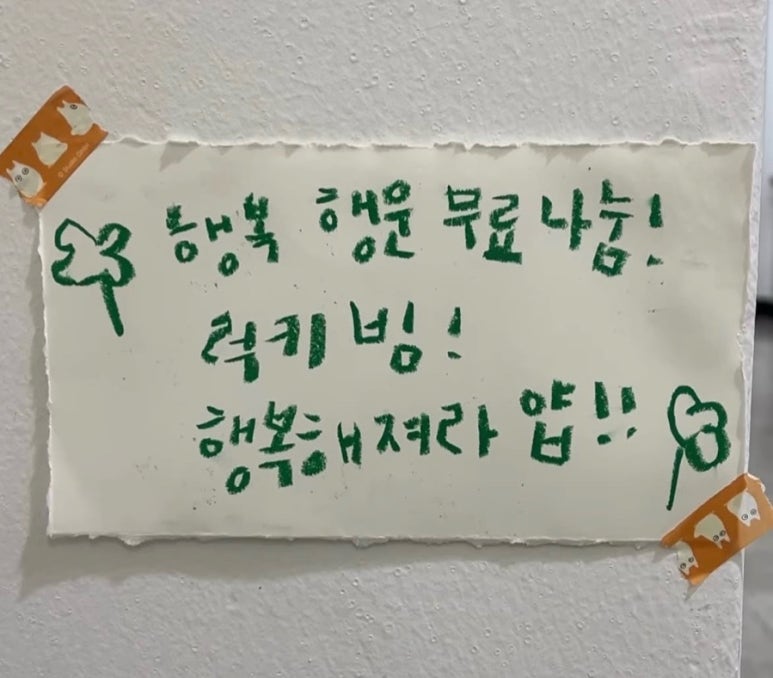 행복 행운 무료 나눔!
럭키 빔!
행복해져라 얍!!